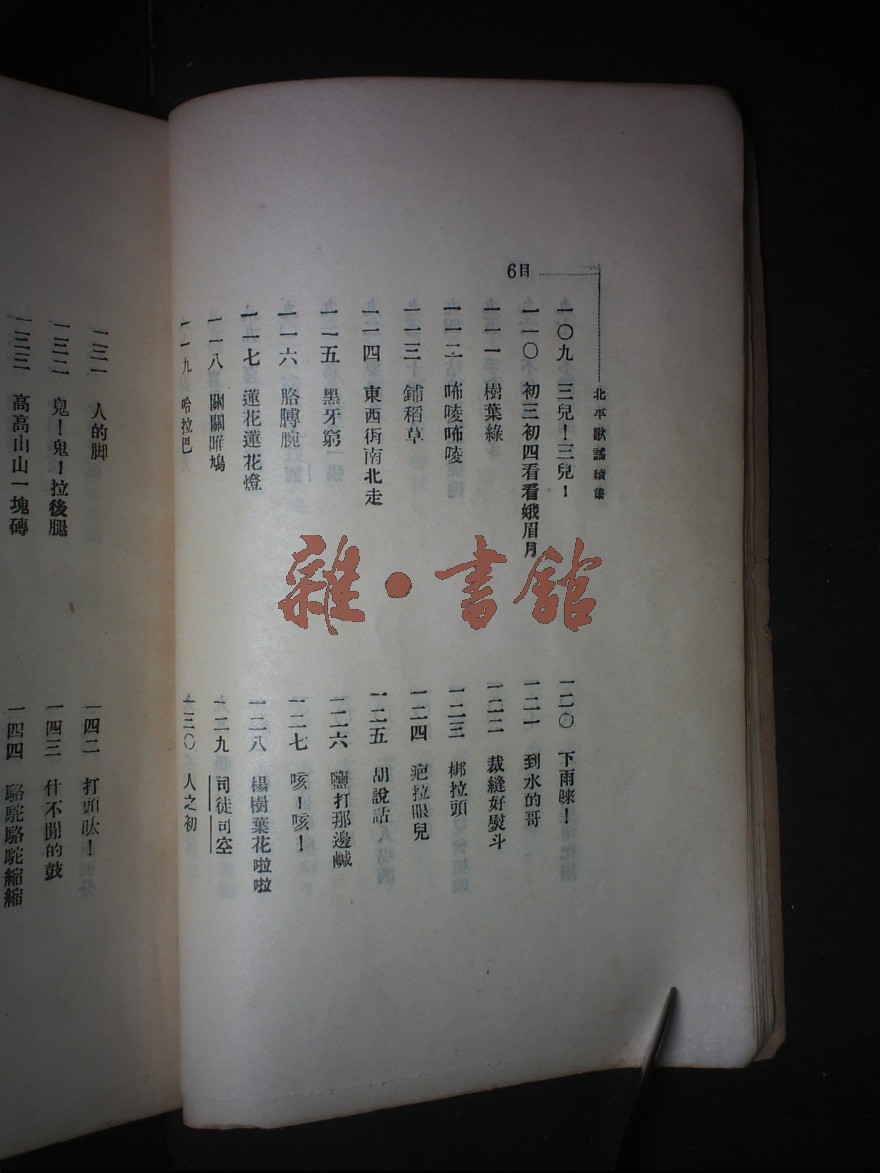 北平歌謠續集
目6
一〇九 三兒！三兒！
一一〇 初三初四看看娥眉月
一一一 樹葉綠
一一二 唏唛唏唛
一一三 鋪稻草
一一四 東西街南北走
一一五 黑牙窮
一一六 胳膊腕
一一七 蓮花蓮花燈
一一八 關關睢鳩
一一九 哈拉巴
一二〇 下雨睞！
一二一 到水的哥
一二二 裁縫好熨斗
一二三 梆拉頭
一二四 疤拉眼兒
一二五 胡說話
一二六 鹽打那邊鹹
一二七 咳！咳！
一二八 楊樹葉花啦啦
一二九 司徒司空
一三〇 人之初
一三一 人的脚
一三二 鬼！鬼！拉後腿
一三三 高高山山一塊磚
一四二 打頭吠！
一四三 什不閒的鼓
一四四 駱駝駱駝縮縮
雜·書舘